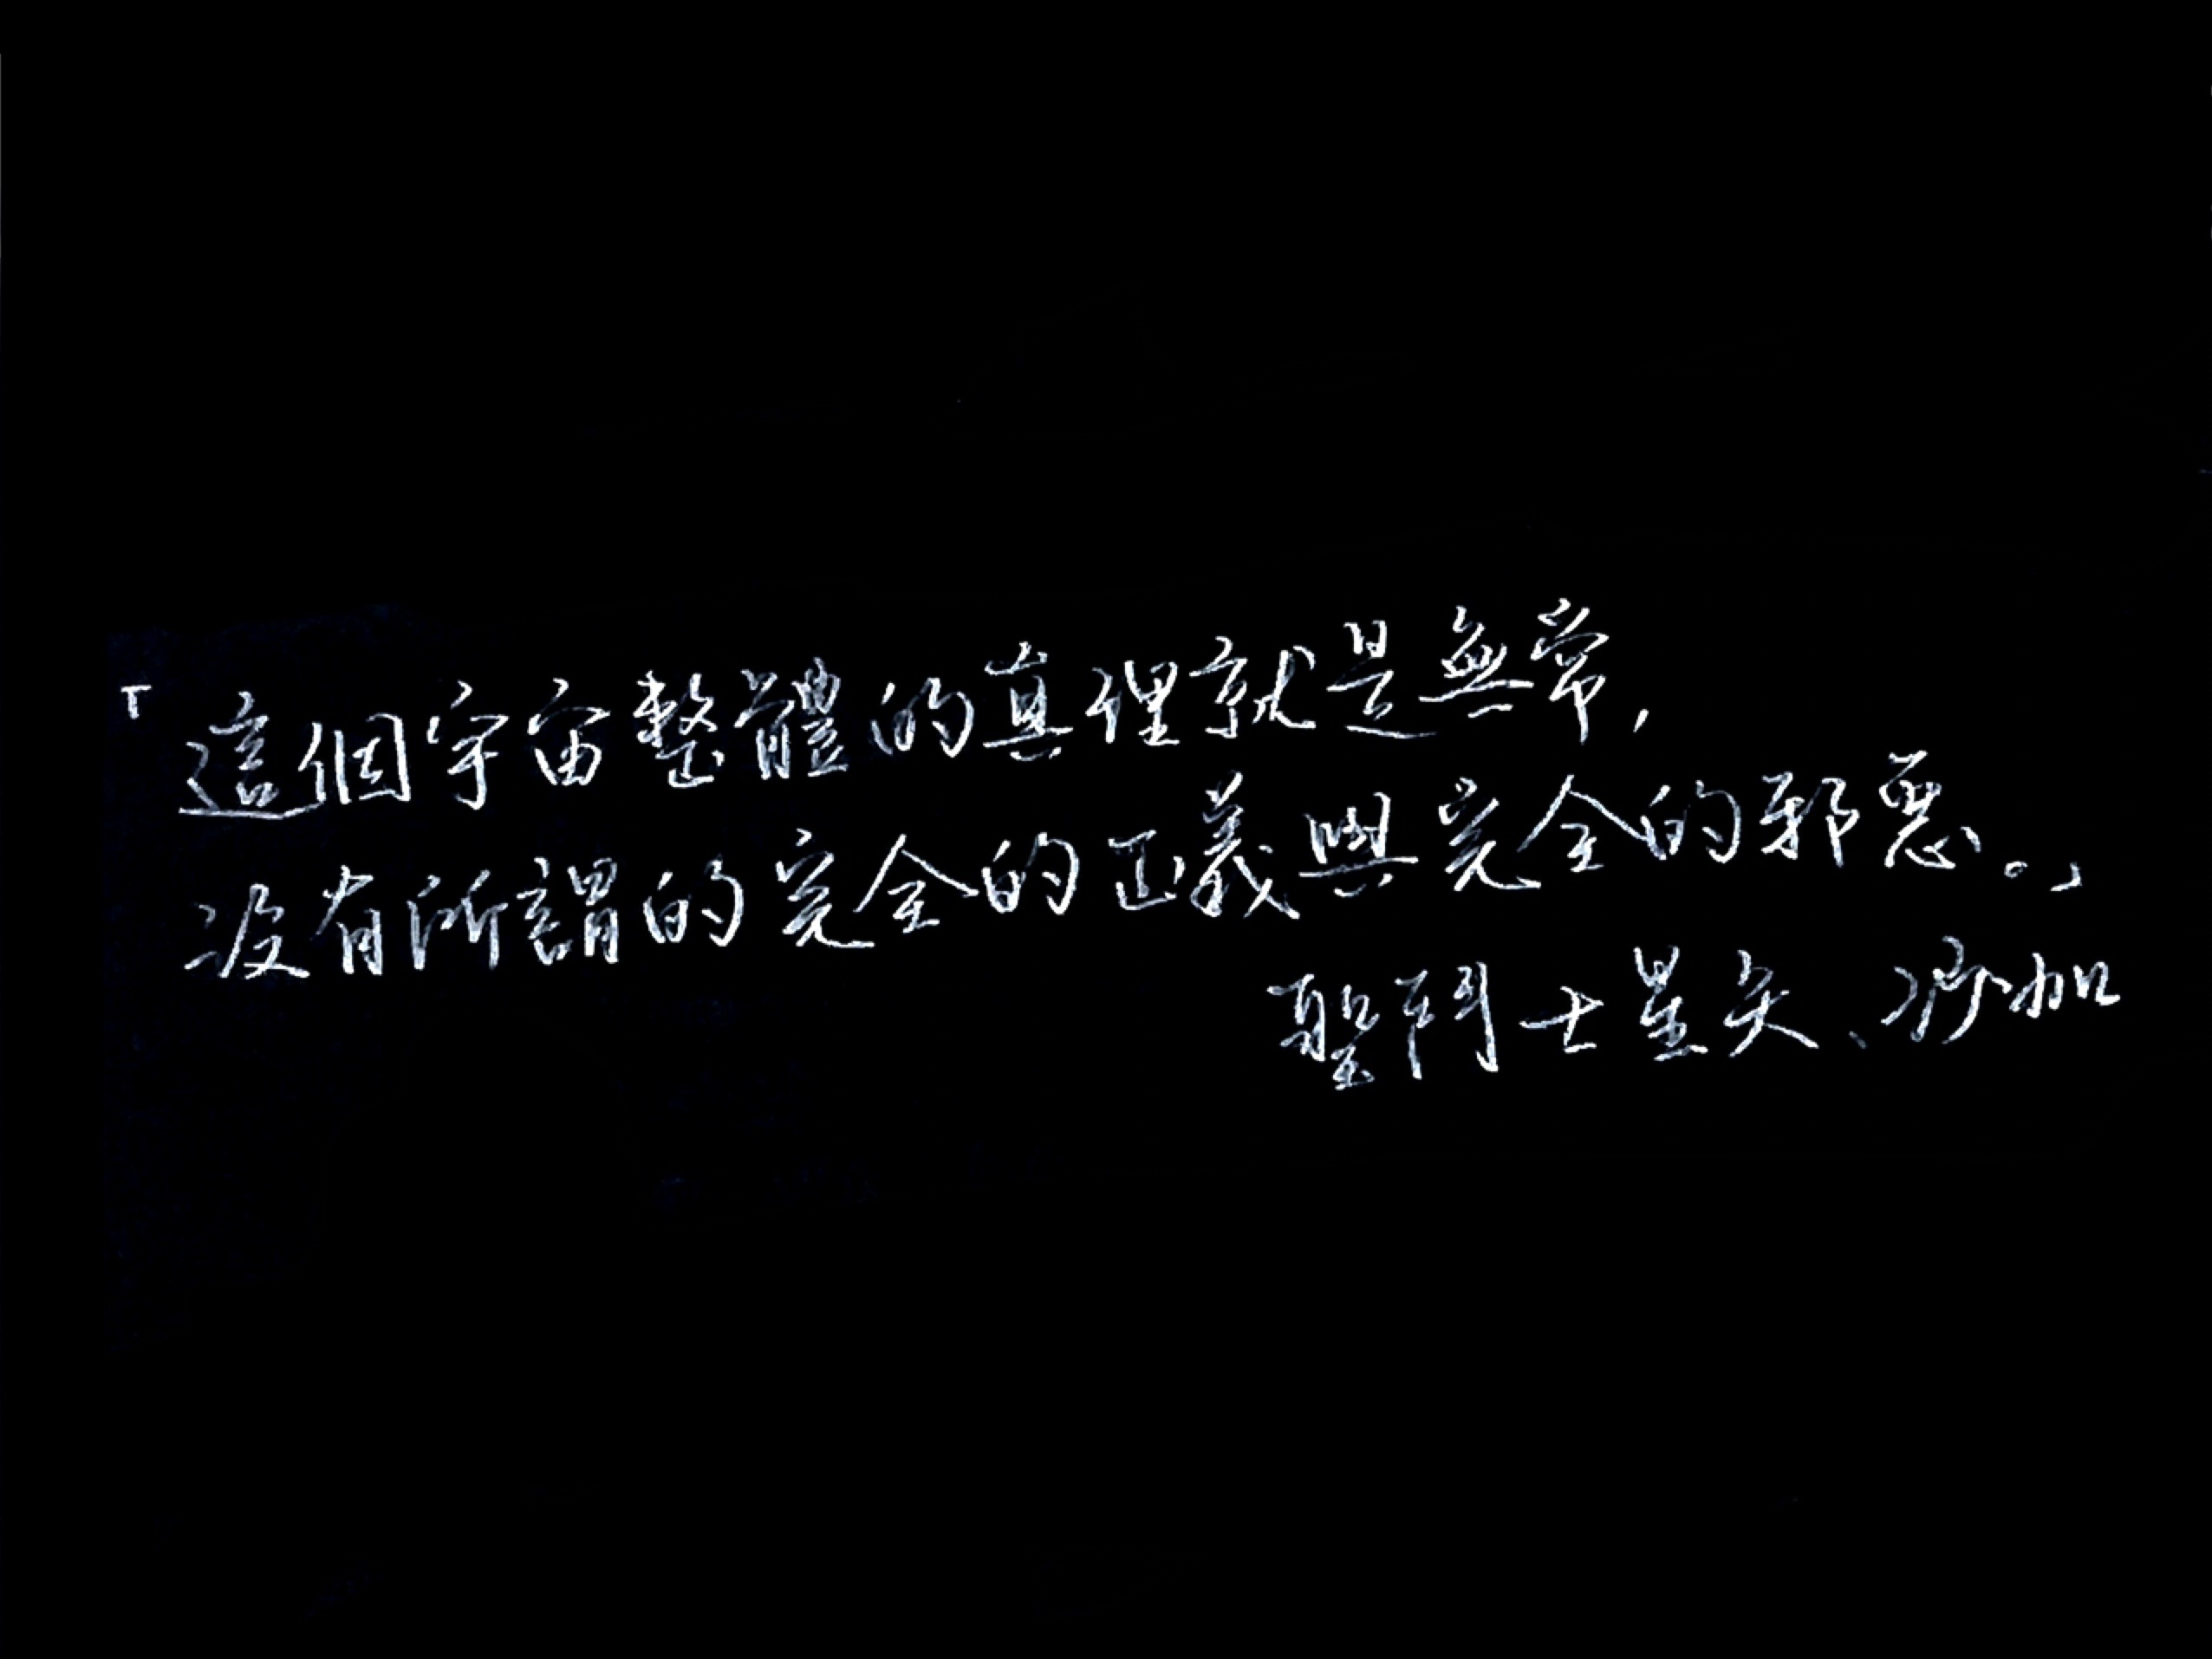 「這個宇宙整體的真理就是無常,
沒有所謂的完全的正義與完全的邪惡。」
聖鬥士星矢、沙加